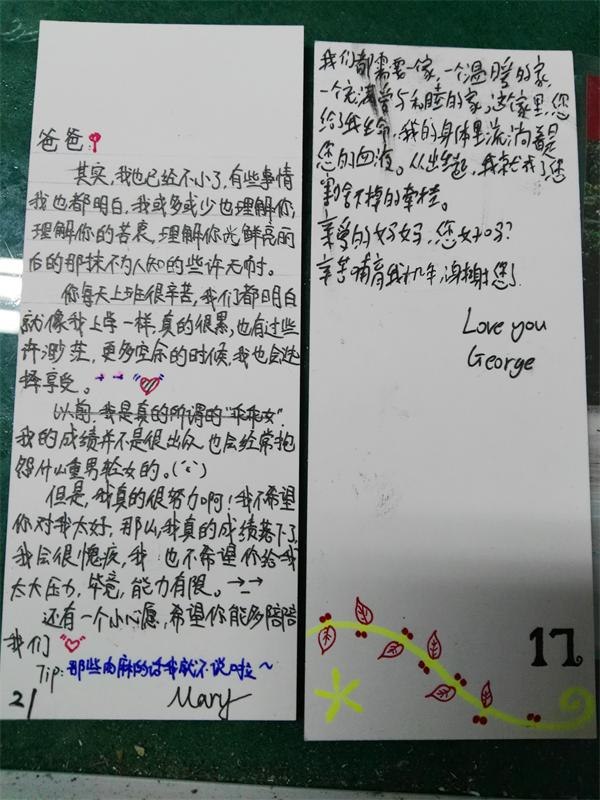 爸爸:
其实,我也已经不小了,有些事情
我也都明白,我或多或少也理解你,
理解你的苦衷,理解你光鲜亮丽
的那抹不为人知的些许无奈。
你每天上班很辛苦,我们都明白
就像我上学一样,真的很累,也有过些
许渺茫,更多空余的时候,我也会选
择享受。
以前,我是真的所谓的"乖乖女",
我的成绩并不是很出众,也会经常抱
怨什么重男轻女的。
但是,我真的很努力啊!我不希望
你对我太好,那么,我真的成绩落下了,
我会很愧疚,我 也不希望你给我
太大压力,毕竟,能力有限。→_→
还有一个小心愿,希望你能多陪陪
我们
Tip:那些肉麻的话我就不说啦~
21
Mary
我们都需要一家,一个温暖的家,
一个充满爱与和睦的家,这家里,您
给了我生命,我的身体里流淌着是
您的血液。从出生起,我就成了您
割舍不掉的牵挂。
亲爱的妈妈,您好吗?
辛苦哺育我十几年,谢谢您了
Love you
George
17